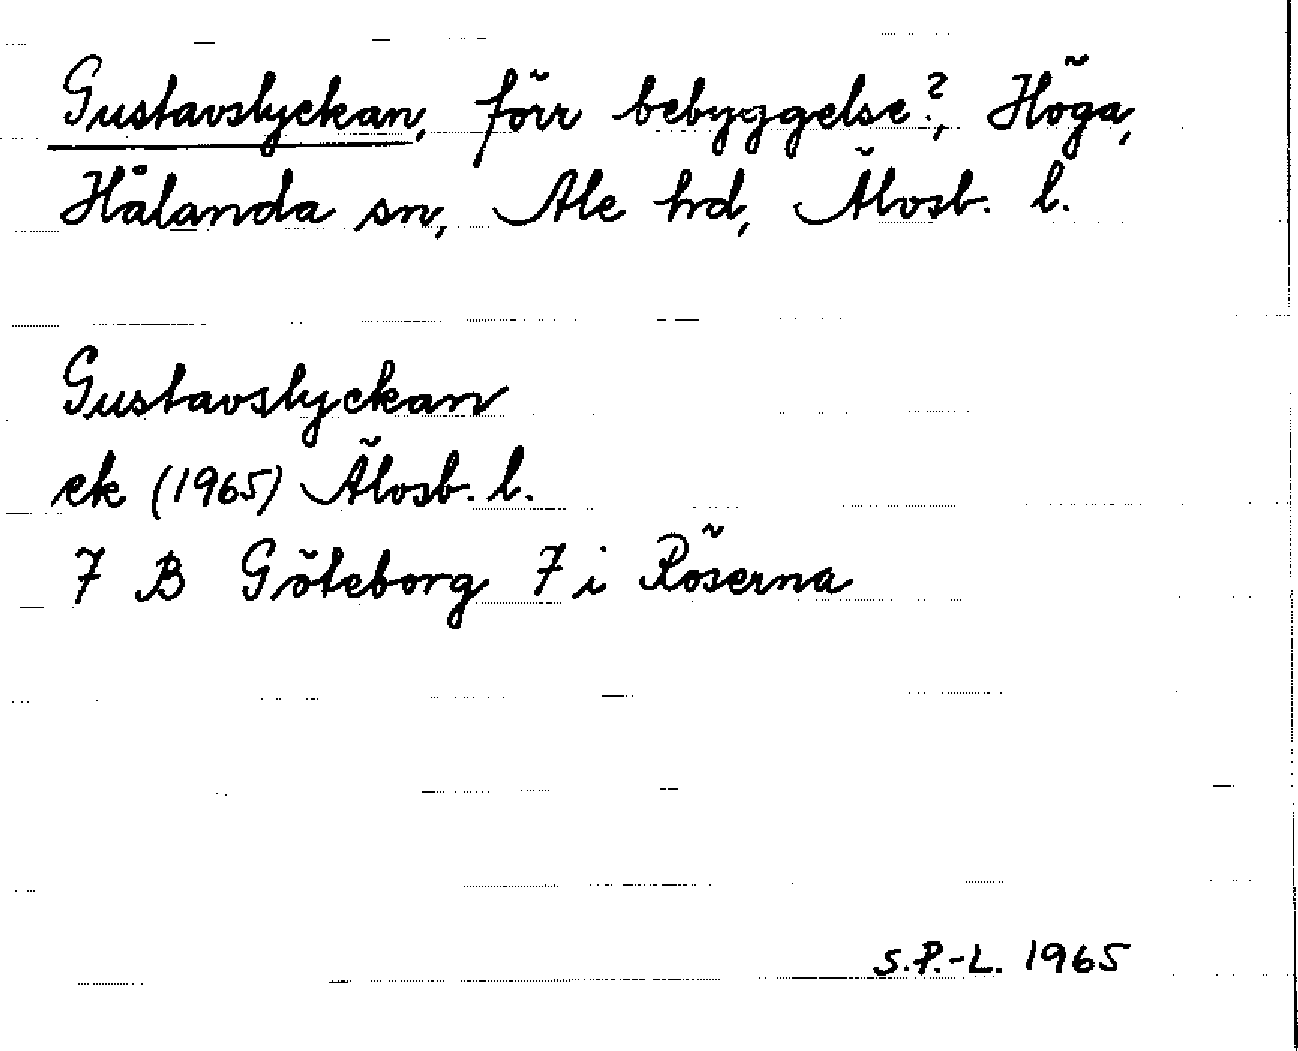 Gustavslyckan, förr bebyggelse?, Höga,
Hålanda sn, Ale hrd, Älvsb. l.
Gustavslyckan
ek (1965) Älvsb. l.
7 B Göteborg 7 i Röserna
S.P.-L. 1965